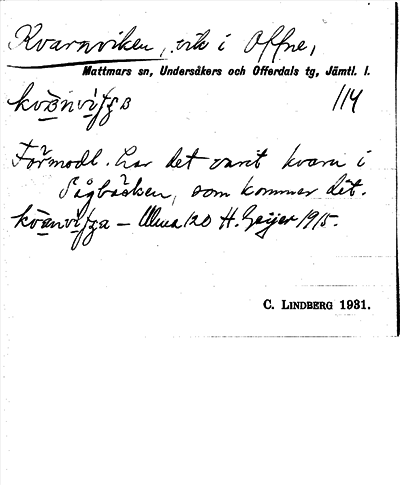 Kvarnviken, vik i Offne,
Mattmars sn, Undersåkers och Offerdals tg, Jämtl. l.
114
Förmodl. har det varit kvarn i
Sågbäcken, som kommer dit.
– Ulma 120 H. Geijer 1915.
C. LINDBERG 1931.